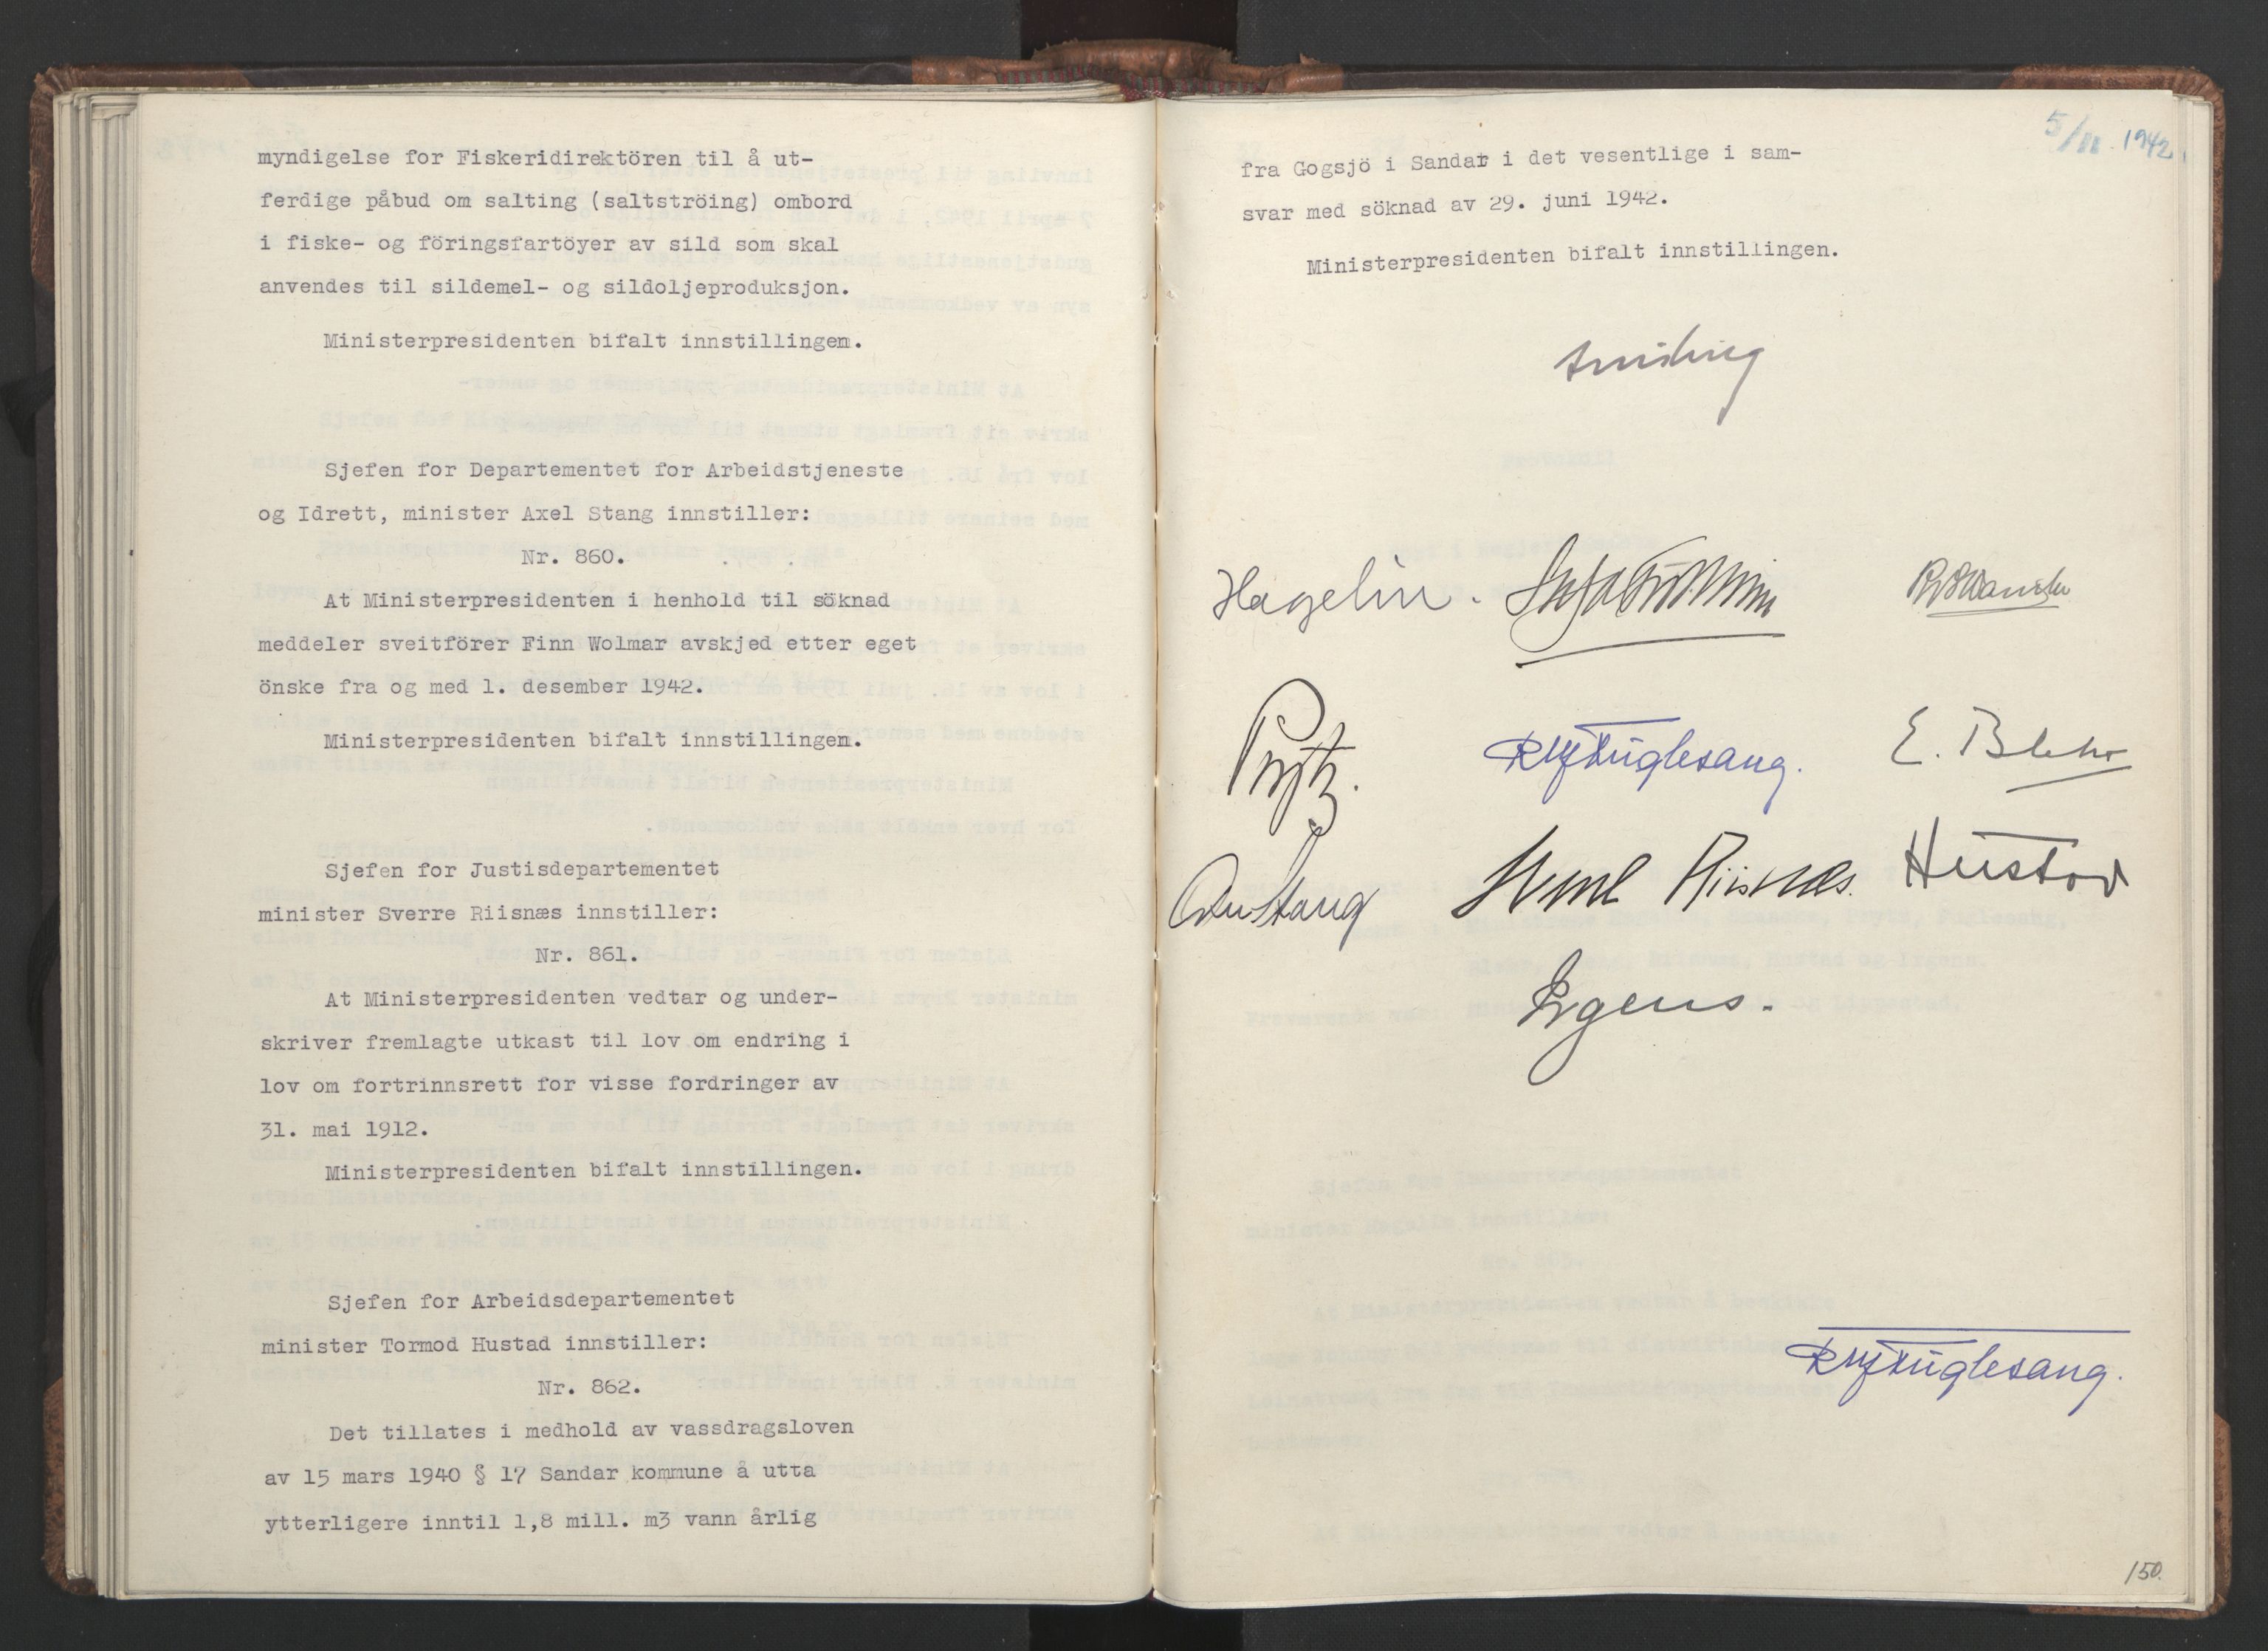 myndigelse for Fiskeridirektören til å ut-
ferdige påbud om salting (saltströing) ombord
i fiske- og föringsfartöyer av sild som skal
anvendes til sildemel- og sildoljeproduksjon.
Ministerpresidenten bifalt innstillingen.
Sjefen for Departementet for Arbeidstjeneste
og Idrett, minister Axel Stang innstiller:
Nr. 860.
At Ministerpresidenten i henhold til söknad
meddeler sveitförer Finn Wolmar avskjed etter eget
önske fra og med 1. desember 1942.
Ministerpresidenten bifalt innstillingen.
Sjefen for Justisdepartementet
minister Sverre Riisnæs innstiller:
Nr. 861.
At Ministerpresidenten vedtar og under-
skriver fremlagte utkast til lov om endring i
lov om fortrinnsrett for visse fordringer av
31. mai 1912.
Ministerpresidenten bifalt innstillingen.
Sjefen for Arbeidsdepartementet
minister Tormod Hustad innstiller:
Nr. 862.
Det tillates i medhold av vassdragsloven
av 15 mars 1940 § 17 Sandar kommune å utta
ytterligere inntil 1,8 mill. m3 vann årlig
5/11. 1942.
fra Gogsjö i Sandar i det vesentlige i sam-
svar med söknad av 29. juni 1942.
Ministerpresidenten bifalt innstillingen.
Hagelin.
Prytz. RJFuglesang. E. Blehr
Stang Riisnæs. Hustad
Irgens.
RJFuglesang.
150.